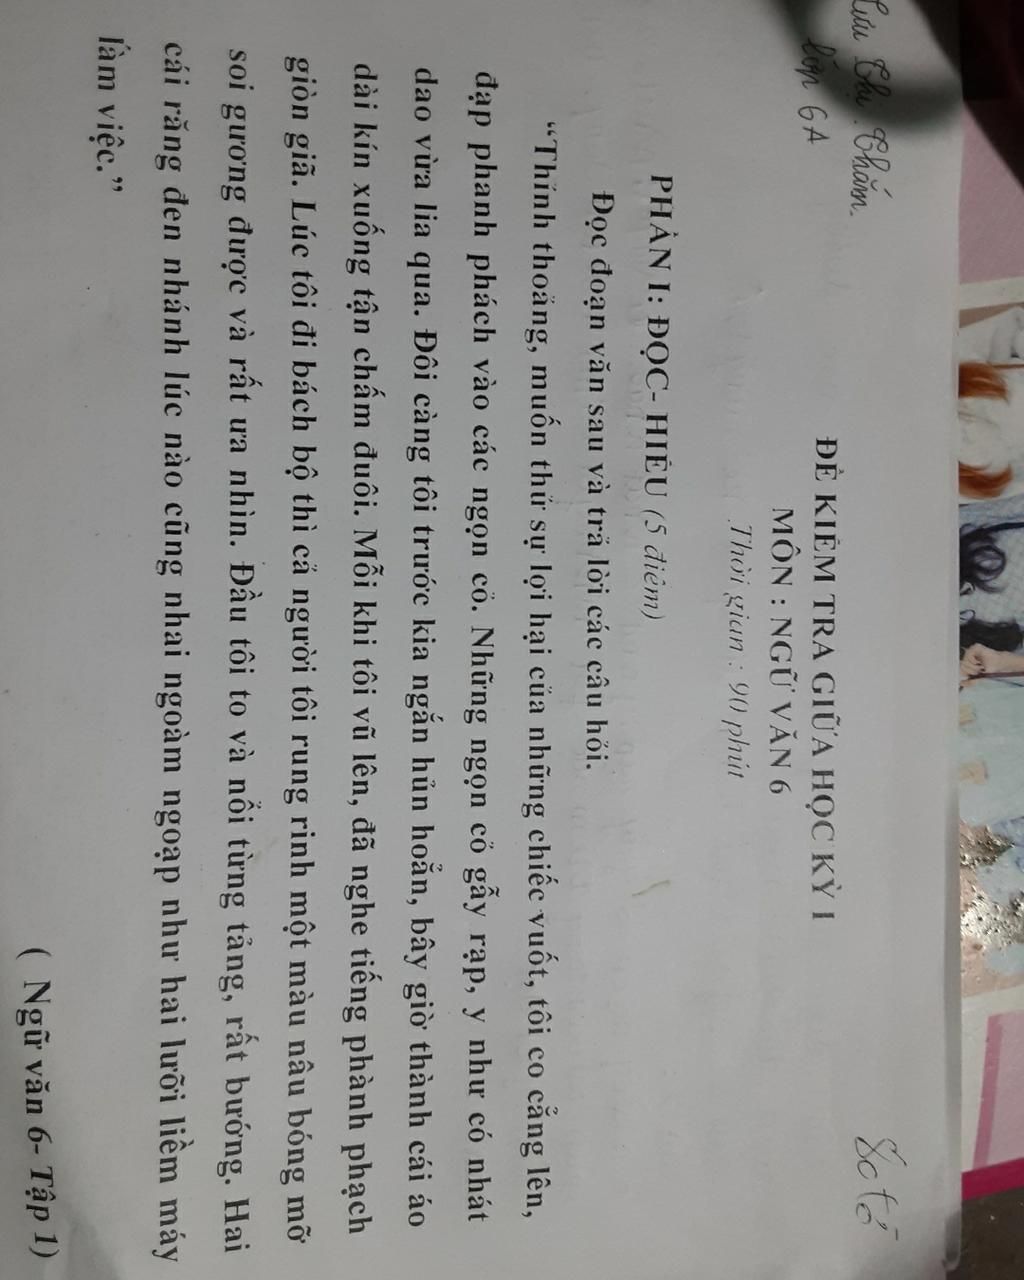 Lưu Thị Thắm.
lớp 6A
ĐỀ KIỂM TRA GIỮA HỌC KỲ I
MÔN : NGỮ VĂN 6
Thời gian : 90 phút
PHẦN I: ĐỌC- HIỂU (5 điểm)
Đọc đoạn văn sau và trả lời các câu hỏi.
“Thỉnh thoảng, muốn thử sự lợi hại của những chiếc vuốt, tôi co cẳng lên,
đạp phanh phách vào các ngọn cỏ. Những ngọn cỏ gẫy rạp, y như có nhát
dao vừa lia qua. Đôi càng tôi trước kia ngắn hủn hoẳn, bây giờ thành cái áo
dài kín xuống tận chấm đuôi. Mỗi khi tôi vũ lên, đã nghe tiếng phành phạch
giòn giã. Lúc tôi đi bách bộ thì cả người tôi rung rinh một màu nâu bóng mỡ
soi gương được và rất ưa nhìn. Đầu tôi to và nổi từng tảng, rất bướng. Hai
cái răng đen nhánh lúc nào cũng nhai ngoàm ngoạp như hai lưỡi liềm máy
làm việc.”
( Ngữ văn 6- Tập 1)